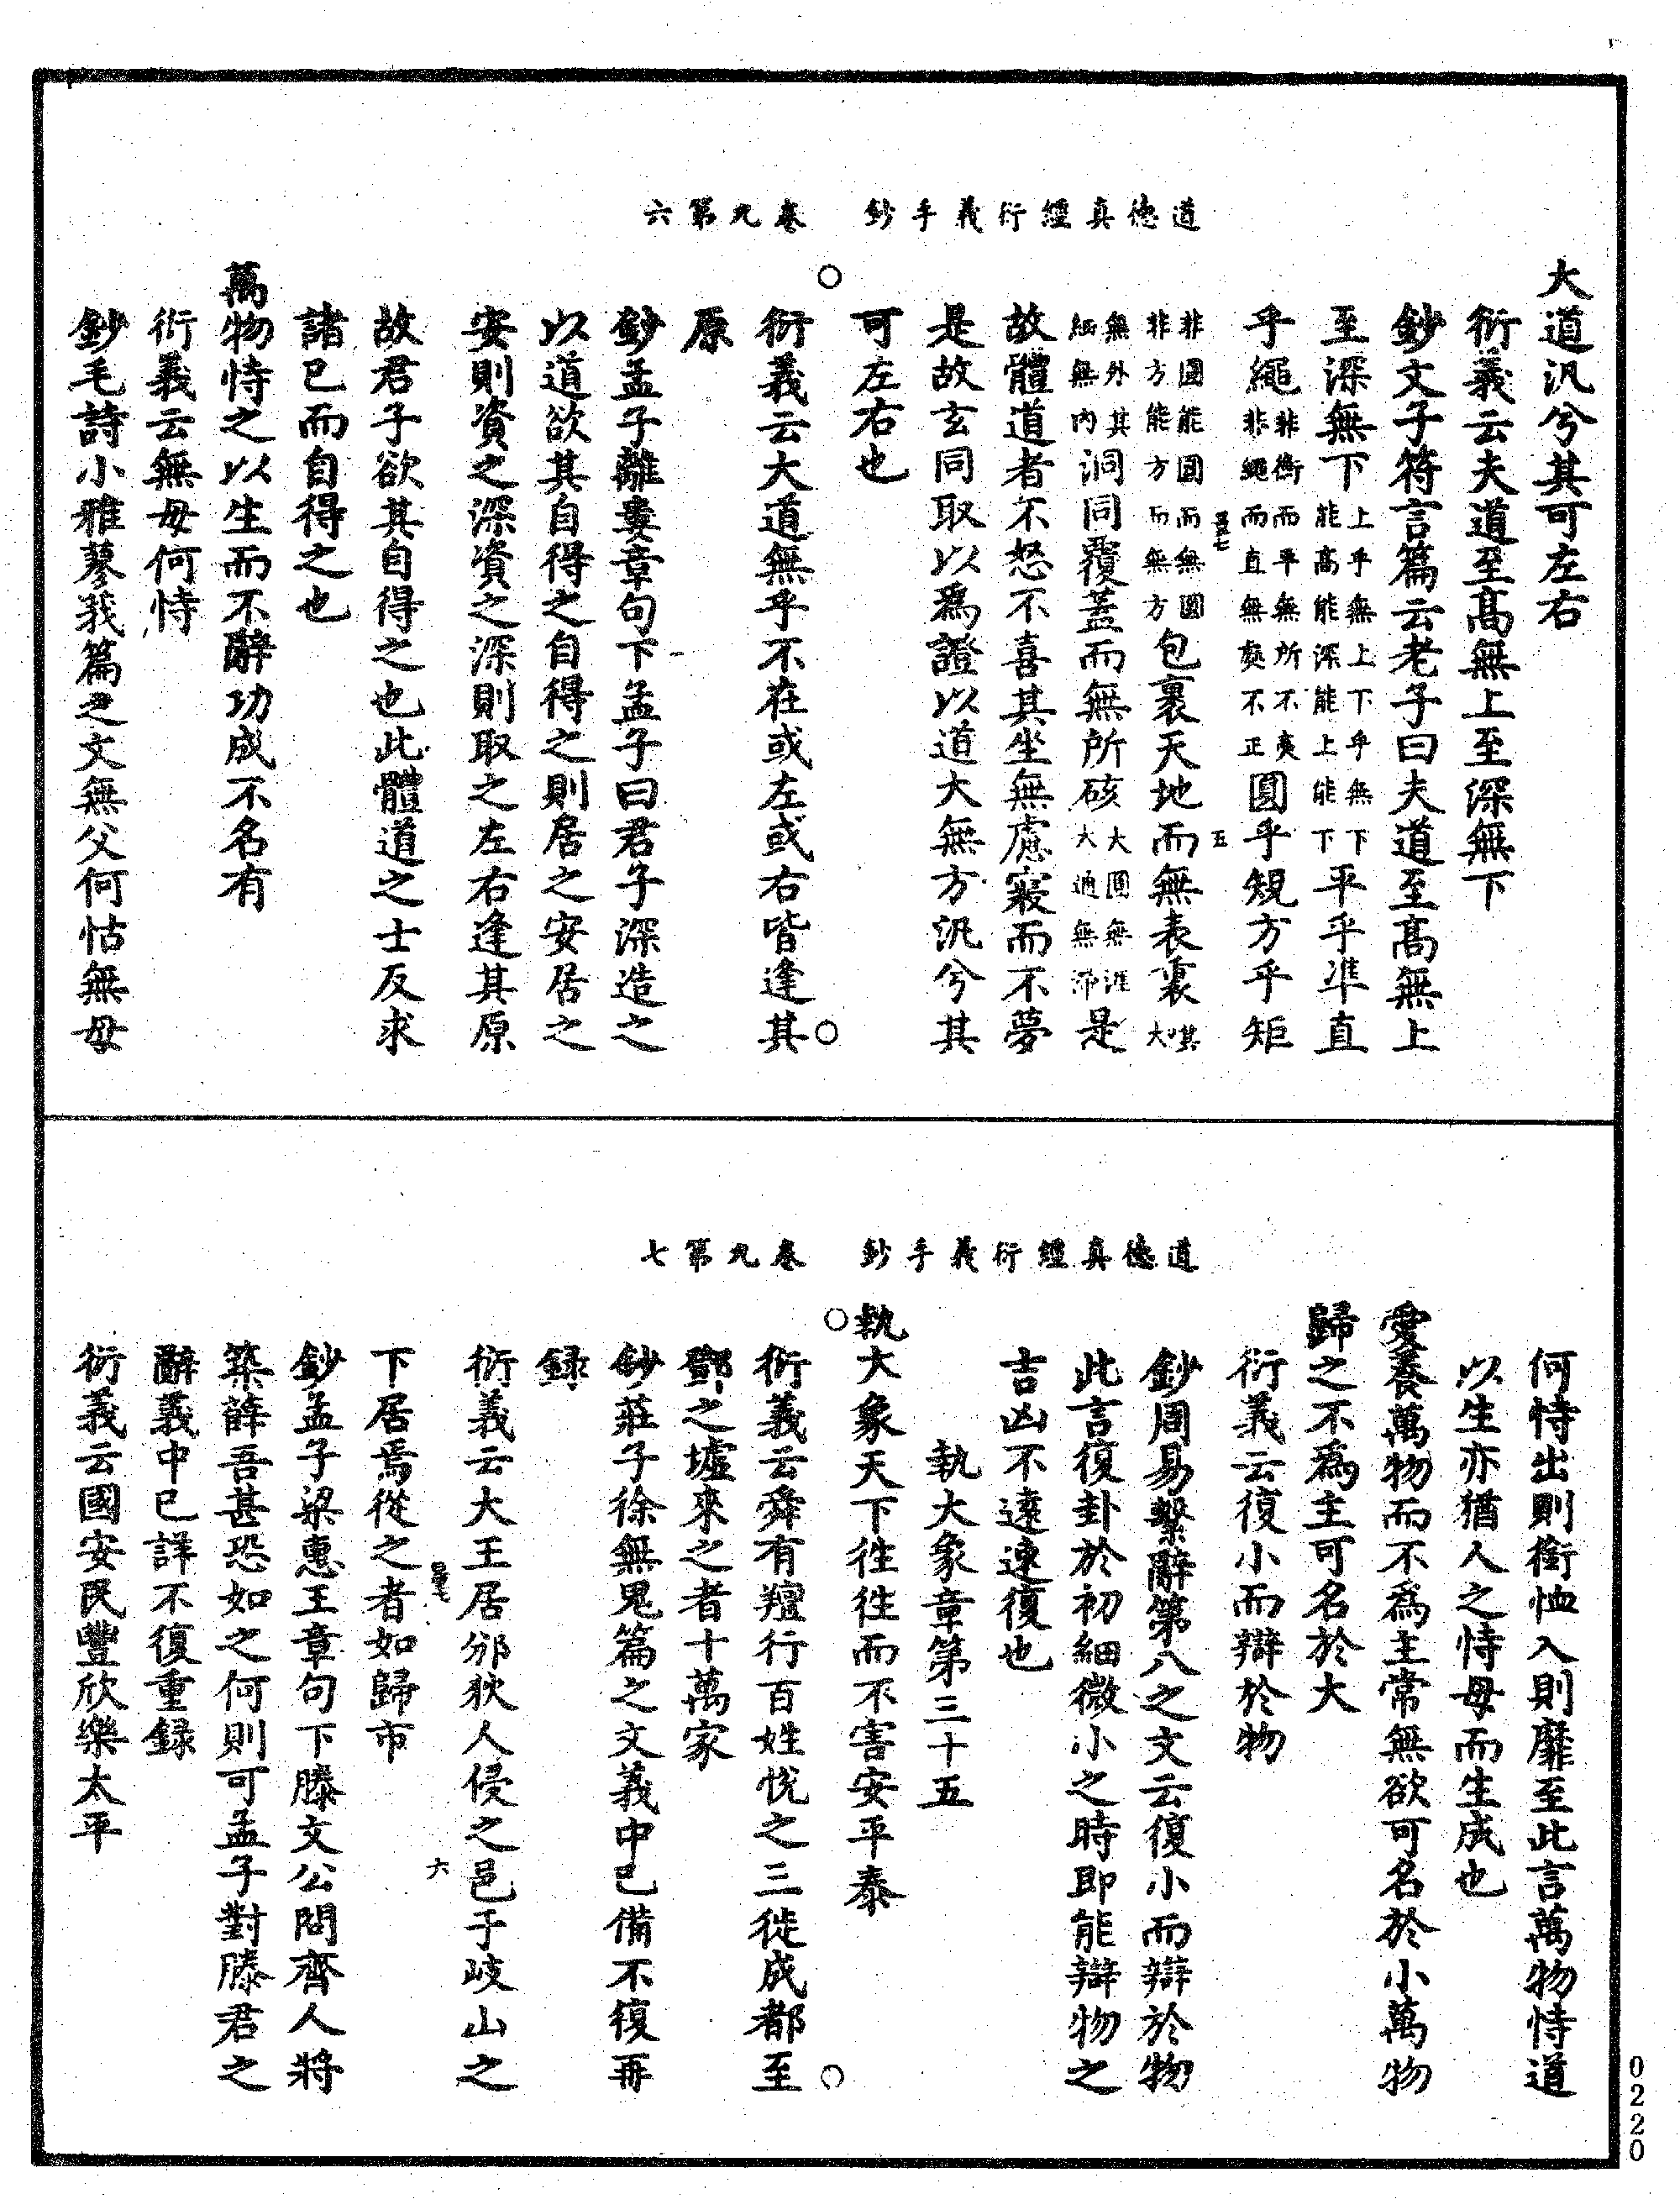 道德真經衍義手鈔　卷九第六
大道汎兮其可左右
衍義云夫道至高無上至深無下
鈔文子符言篇云老子曰夫道至高無上
至深無下上乎無上下乎無下能高能深能上能下平乎準直
乎繩非衡而平無所不爽非繩而直無爽不正圓乎規方乎矩
五
非圓能圓而無圓非方能方而無方包裹天地而無表裏其大
無外其細無內洞同覆蓋而無所硋大圓無涯大通無滯是
故體道者不怒不喜其坐無慮寢而不夢
是故玄同取以為證以道大無方汎兮其
可左右也
衍義云大道無乎不在或左或右皆逢其
原
鈔孟子離婁章句下孟子曰君子深造之
以道欲其自得之自得之則居之安居之
安則資之深資之深則取之左右逢其原
故君子欲其自得之也此體道之士反求
諸己而自得之也
萬物恃之以生而不辭功成不名有
衍義云無母何恃
鈔毛詩小雅蓼莪篇之文無父何怙無母
道德真經衍義手鈔　卷九第七
何恃出則銜恤入則靡至此言萬物恃道
以生亦猶人之恃母而生成也
愛養萬物而不為主常無欲可名於小萬物
歸之不為主可名於大
衍義云復小而辯於物
鈔周易繫辭第八之文云復小而辯於物
此言復卦於初細微小之時即能辯物之
吉凶不遠速復也
執大象章第三十五
執大象天下往往而不害安平泰
衍義云舜有羶行百姓悅之三徙成都至
鄧之墟來之者十萬家
鈔莊子徐無鬼篇之文義中已備不復再
録
衍義云大王居邠狄人侵之邑于岐山之
六
下居焉從之者如歸市
鈔孟子梁惠王章句下滕文公問齊人將
築薛吾甚恐如之何則可孟子對滕君之
辭義中已詳不復重録
衍義云國安民豐欣樂太平
0220